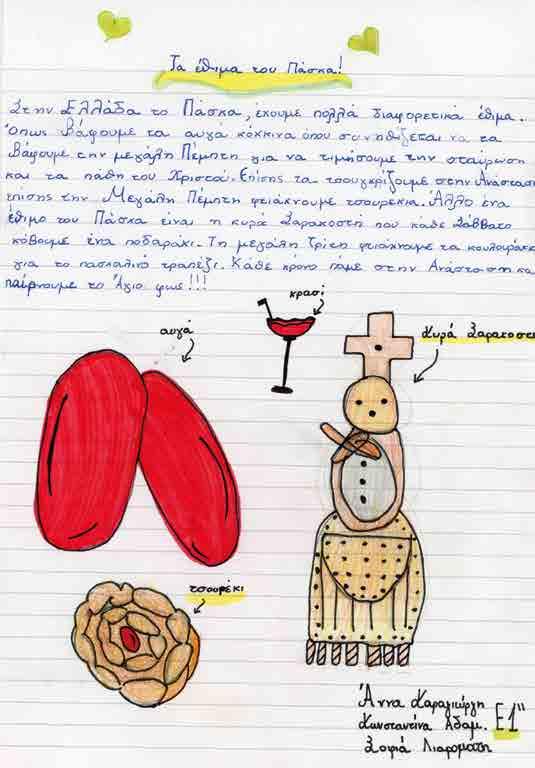 Τα έθιμα του Πάσκα!
Στην Ελλάδα το Πάσκα, έχουμε πολλά διαφορετικά έθιμα.
Όπως Βάφουμε τα αυγα κόκκινα όπου συνηθίζεται να τα
Βάφουμε την μεγάλη Πέμπτη για να τιμήσουμε την σταύρωση
και τα πάθη του Χριστού. Επίσης τα τσουγκρίζουμε στην Ανάσταση
επίσης την Μεγάλη Πέμπτη φτιάχνουμε τσουρέκια. Άλλο ένα
έθιμο του Πάσκα είναι η κυρά Σαρακοστή που κάθε Σάββατο
κόβουμε ένα ποδαράκι. Τη μεγάλη Τρίτη φτιάχνουμε τα κουλουράκι
για το πασχαλινό τραπέζι. Κάθε χρόνο πάμε στην Ανάσταση και
παίρνουμε το Άγιο φως!!!
κρασί
αυγά
Κυρά Σαρακοστή
τσουρέκι
Άννα Καραγιώργη
Κωνσταντίνα Αδαμ. Ε1"
Σοφιά Λιαρομάτη